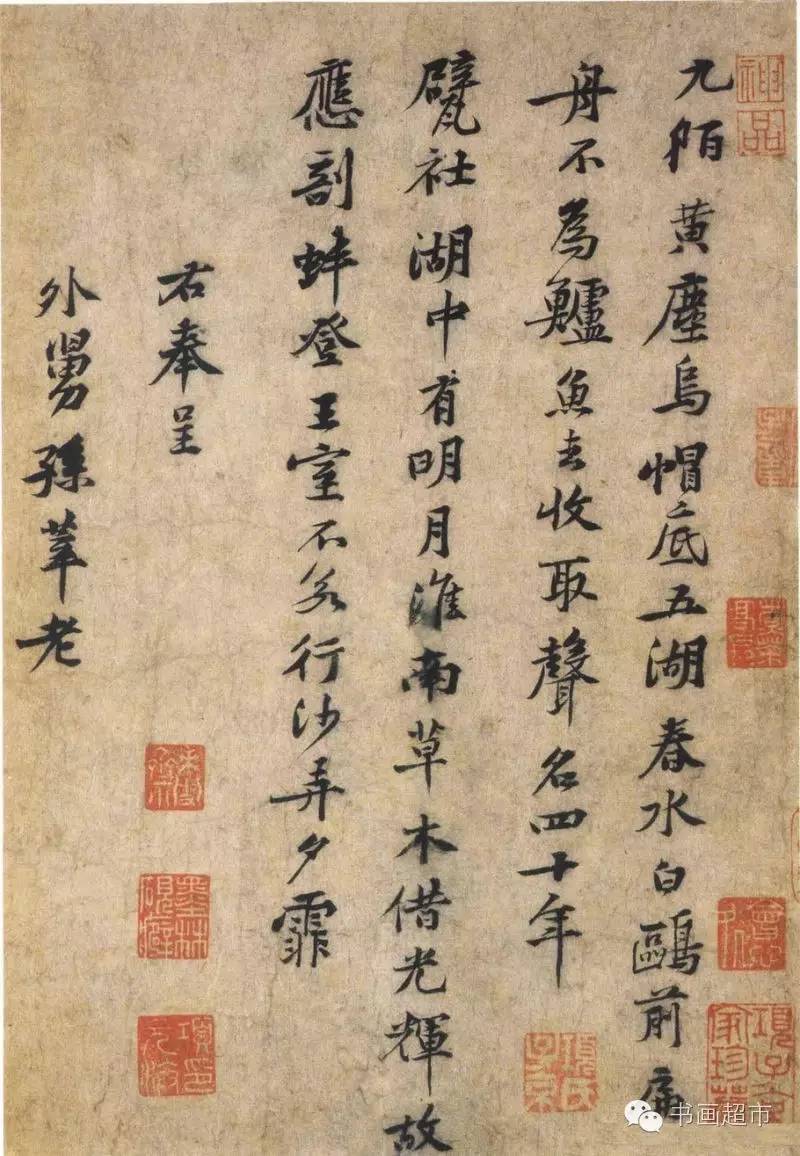 神品
九陌黄塵烏帽底五湖春水白鷗前扁
舟不為鱸魚去收取聲名四十年
甓社湖中有明月淮南草木借光輝故
應剖蚌登王室不若行沙弄夕霏
右奉呈
外舅孫莘老
項子京家珍藏
項氏子京
书画超市